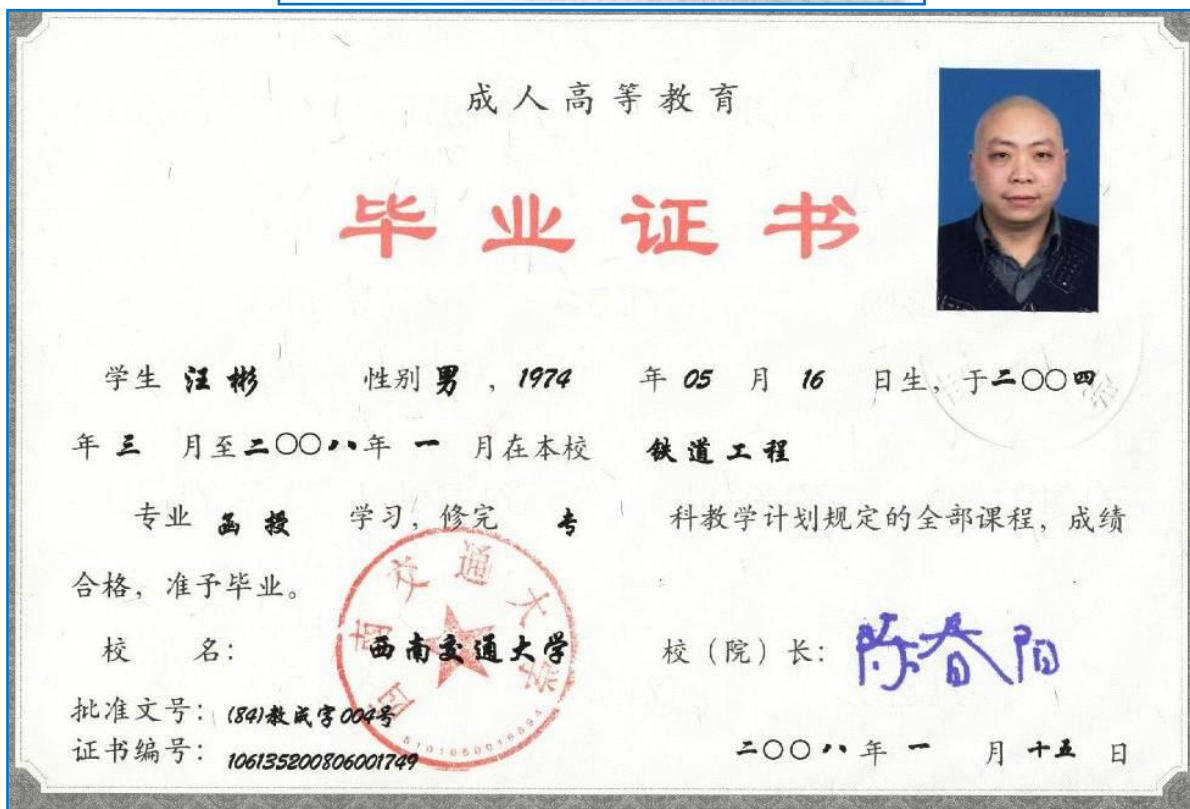 成人高等教育
毕业证书
学生 汪彬 性别 男 , 1974 年 05 月 16 日生, 于二〇〇四
年 三 月至二〇〇八年 一 月在本校 铁道工程
专业 函授 学习, 修完 专 科教学计划规定的全部课程, 成绩
合格, 准予毕业。
校 名: 西南交通大学 校 (院) 长: 陈春阳
西南交通大学
批准文号: (84)教成字004号
证书编号: 106135200806001749
二〇〇八年 一 月 十五 日